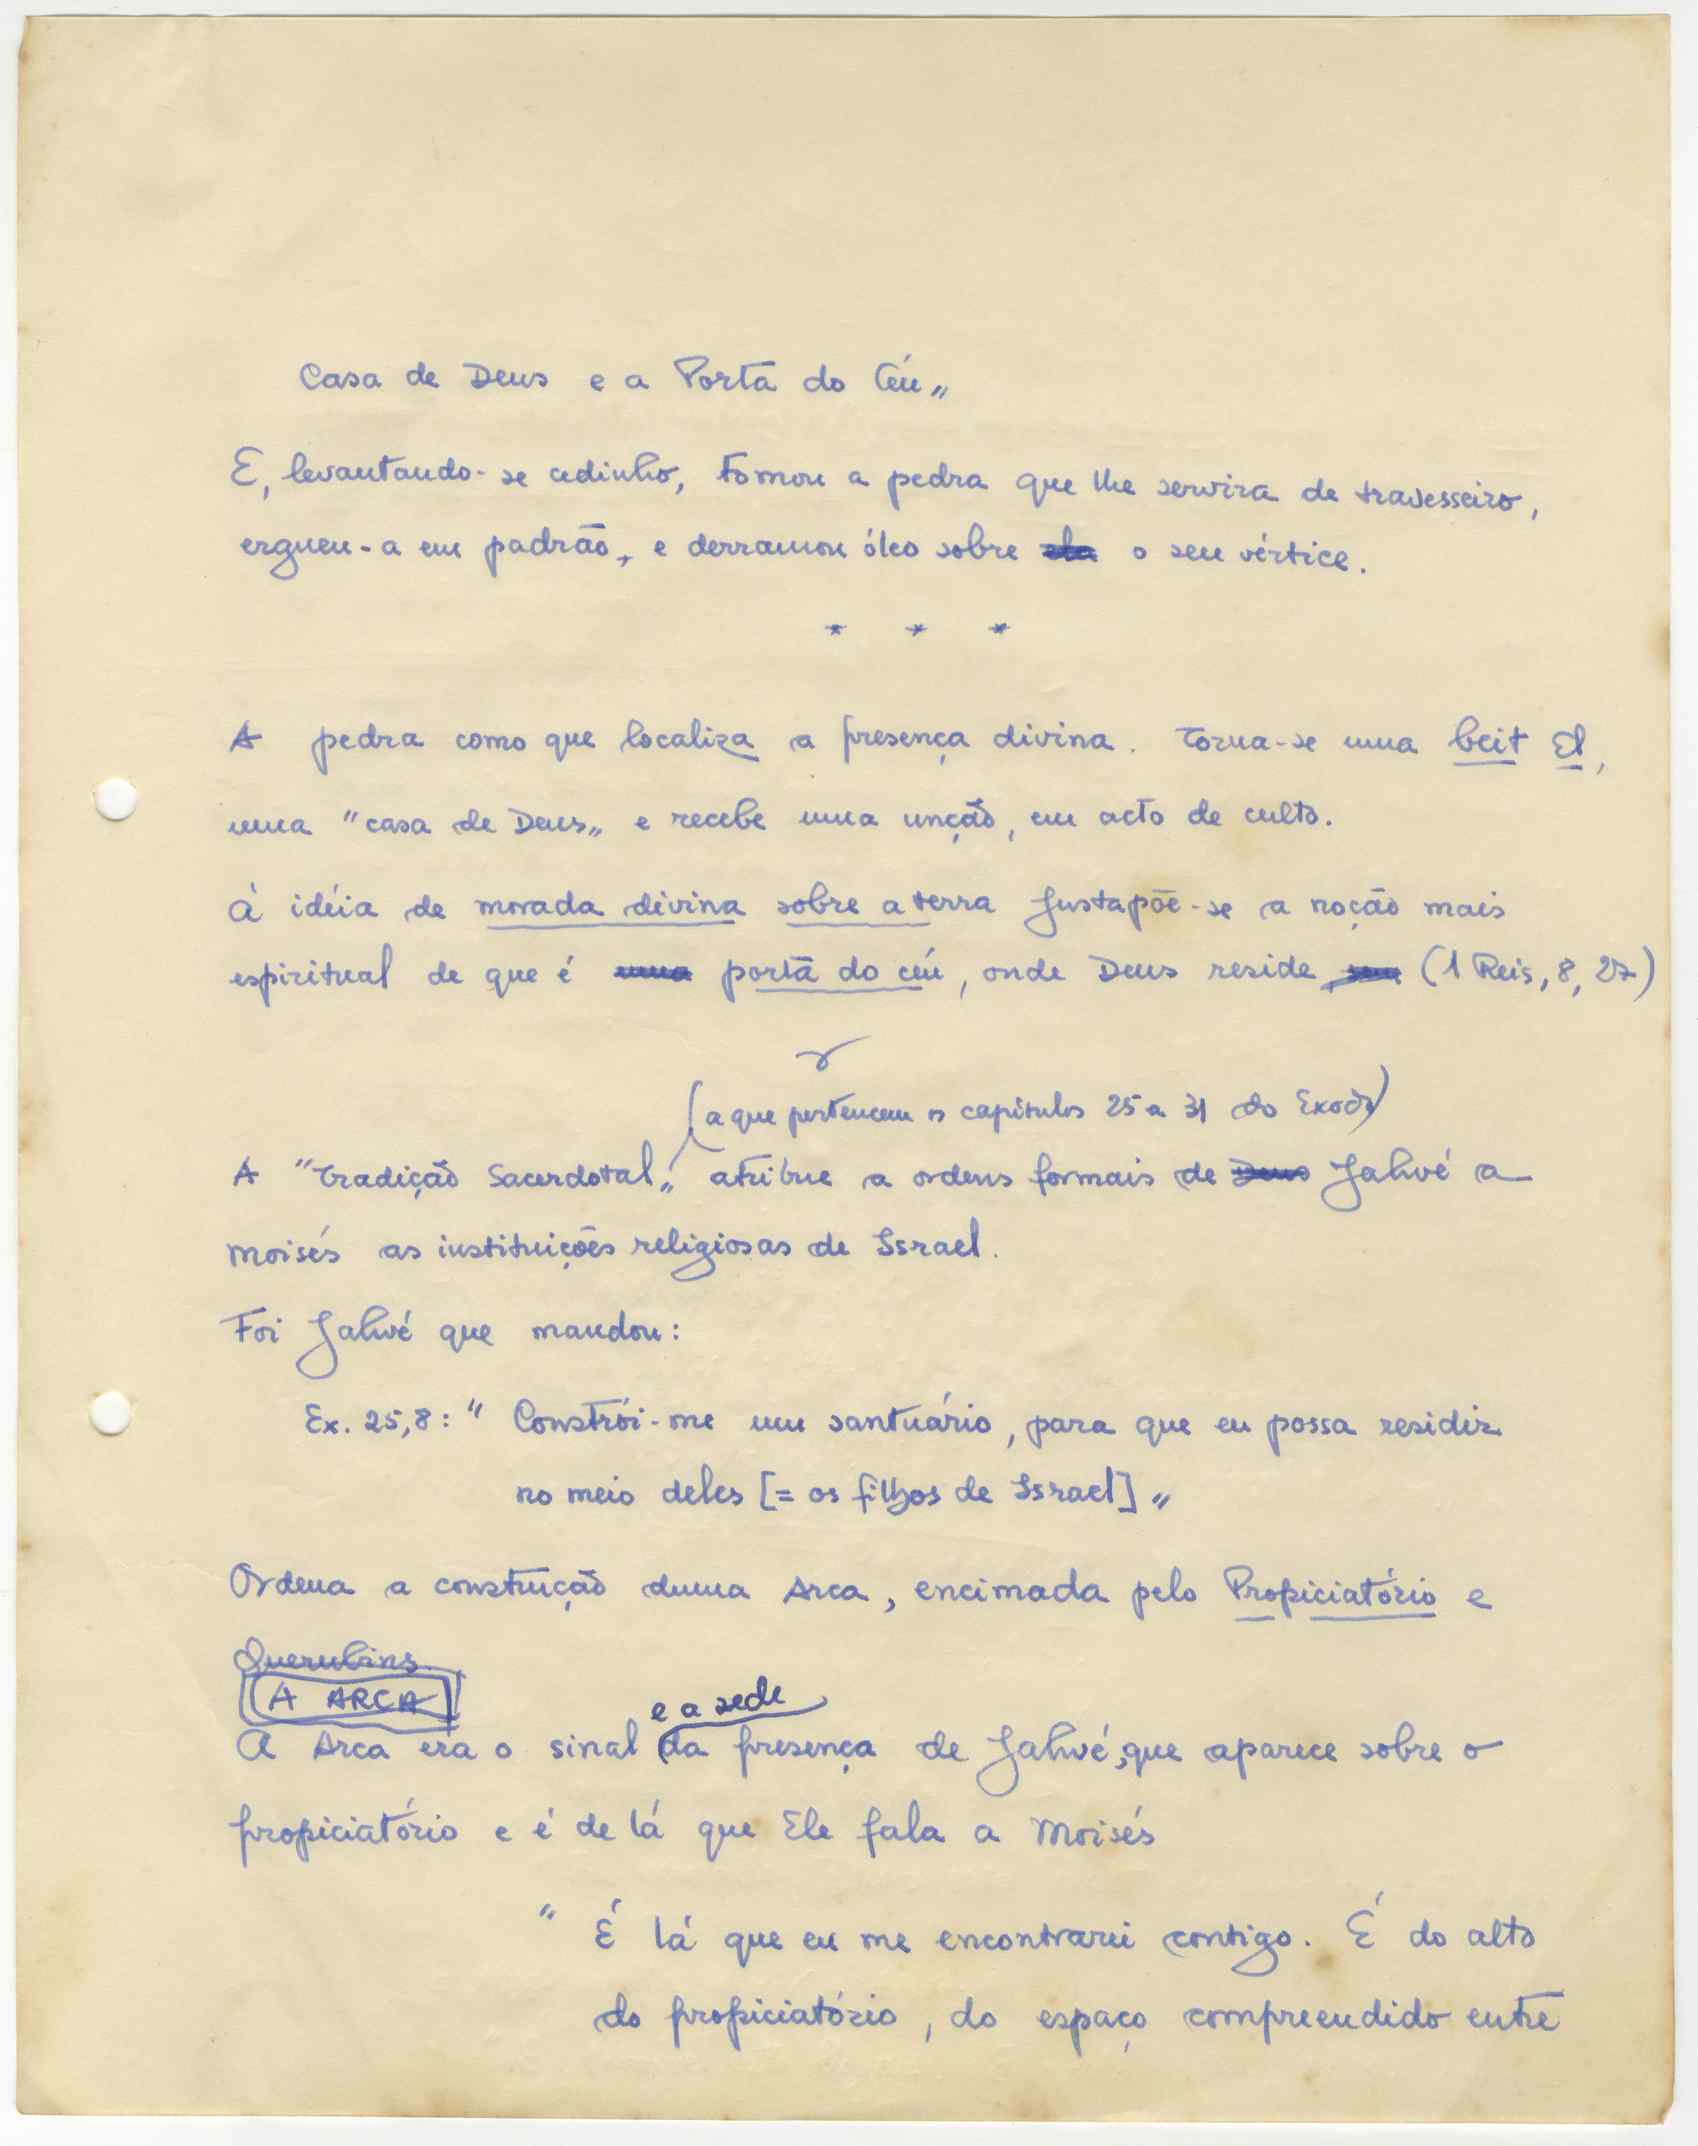 Casa de Deus e a Porta do Céu„
E, levantando-se cedinho, tomou a pedra que lhe servira de travesseiro,
ergueu-a em padrão, e derramou óleo sobre ela o seu vértice.
* * *
A pedra como que localiza a presença divina. Torna-se uma beit El,
uma "casa de Deus„ e recebe uma unção, em acto de culto.
À idéia de morada divina sobre a terra justapõe-se a noção mais
espiritual de que é uma porta do céu, onde Deus reside (1 Reis, 8, 27)
(a que pertencem os capítulos 25 a 31 do Exodo)
A "Tradição Sacerdotal„ atribue a ordens formais de Deus Jahvé a
Moisés as instituições religiosas de Israel.
Foi Jahvé que mandou:
Ex. 25,8: " Constrói-me um santuário, para que eu possa residir
no meio deles [= os filhos de Israel] „
Ordena a construção duma Arca, encimada pelo Propiciatório e
Querubins.
A ARCA
e a sede
A Arca era o sinal da presença de Jahvé, que aparece sobre o
propiciatório e é de lá que Ele fala a Moisés
" É lá que eu me encontrarei contigo. É do alto
do propiciatório, do espaço compreendido entre